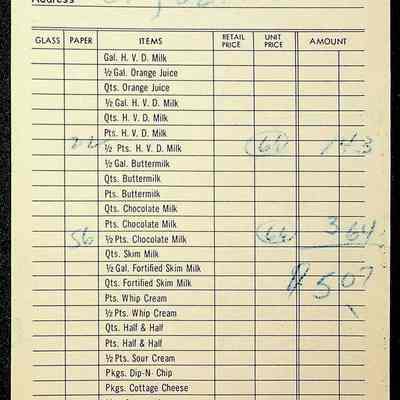 Address
GLASS PAPER ITEMS RETAIL PRICE UNIT PRICE AMOUNT
Gal. H. V. D. Milk
½ Gal. Orange Juice
Qts. Orange Juice
½ Gal. H. V. D. Milk
Qts. H. V. D. Milk
Pts. H. V. D. Milk
22 ½ Pts. H. V. D. Milk 1 43
½ Gal. Buttermilk
Qts. Buttermilk
Pts. Buttermilk
Qts. Chocolate Milk
Pts. Chocolate Milk
56 ½ Pts. Chocolate Milk 3 64
Qts. Skim Milk
½ Gal. Fortified Skim Milk
Qts. Fortified Skim Milk $5 07
Pts. Whip Cream
½ Pts. Whip Cream
Qts. Half & Half
Pts. Half & Half
½ Pts. Sour Cream
Pkgs. Dip-N- Chip
Pkgs. Cottage Cheese